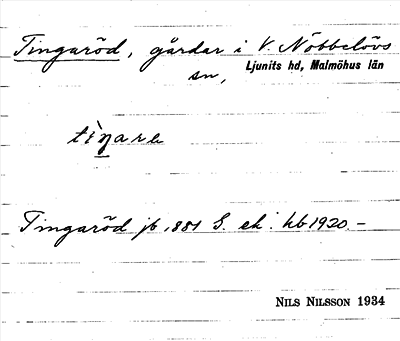 Tingaröd, gårdar i V. Nöbbelövs
sn, Ljunits hd, Malmöhus län
Tingaröd jb 1881 S. ek. kb 1920.–
NILS NILSSON 1934